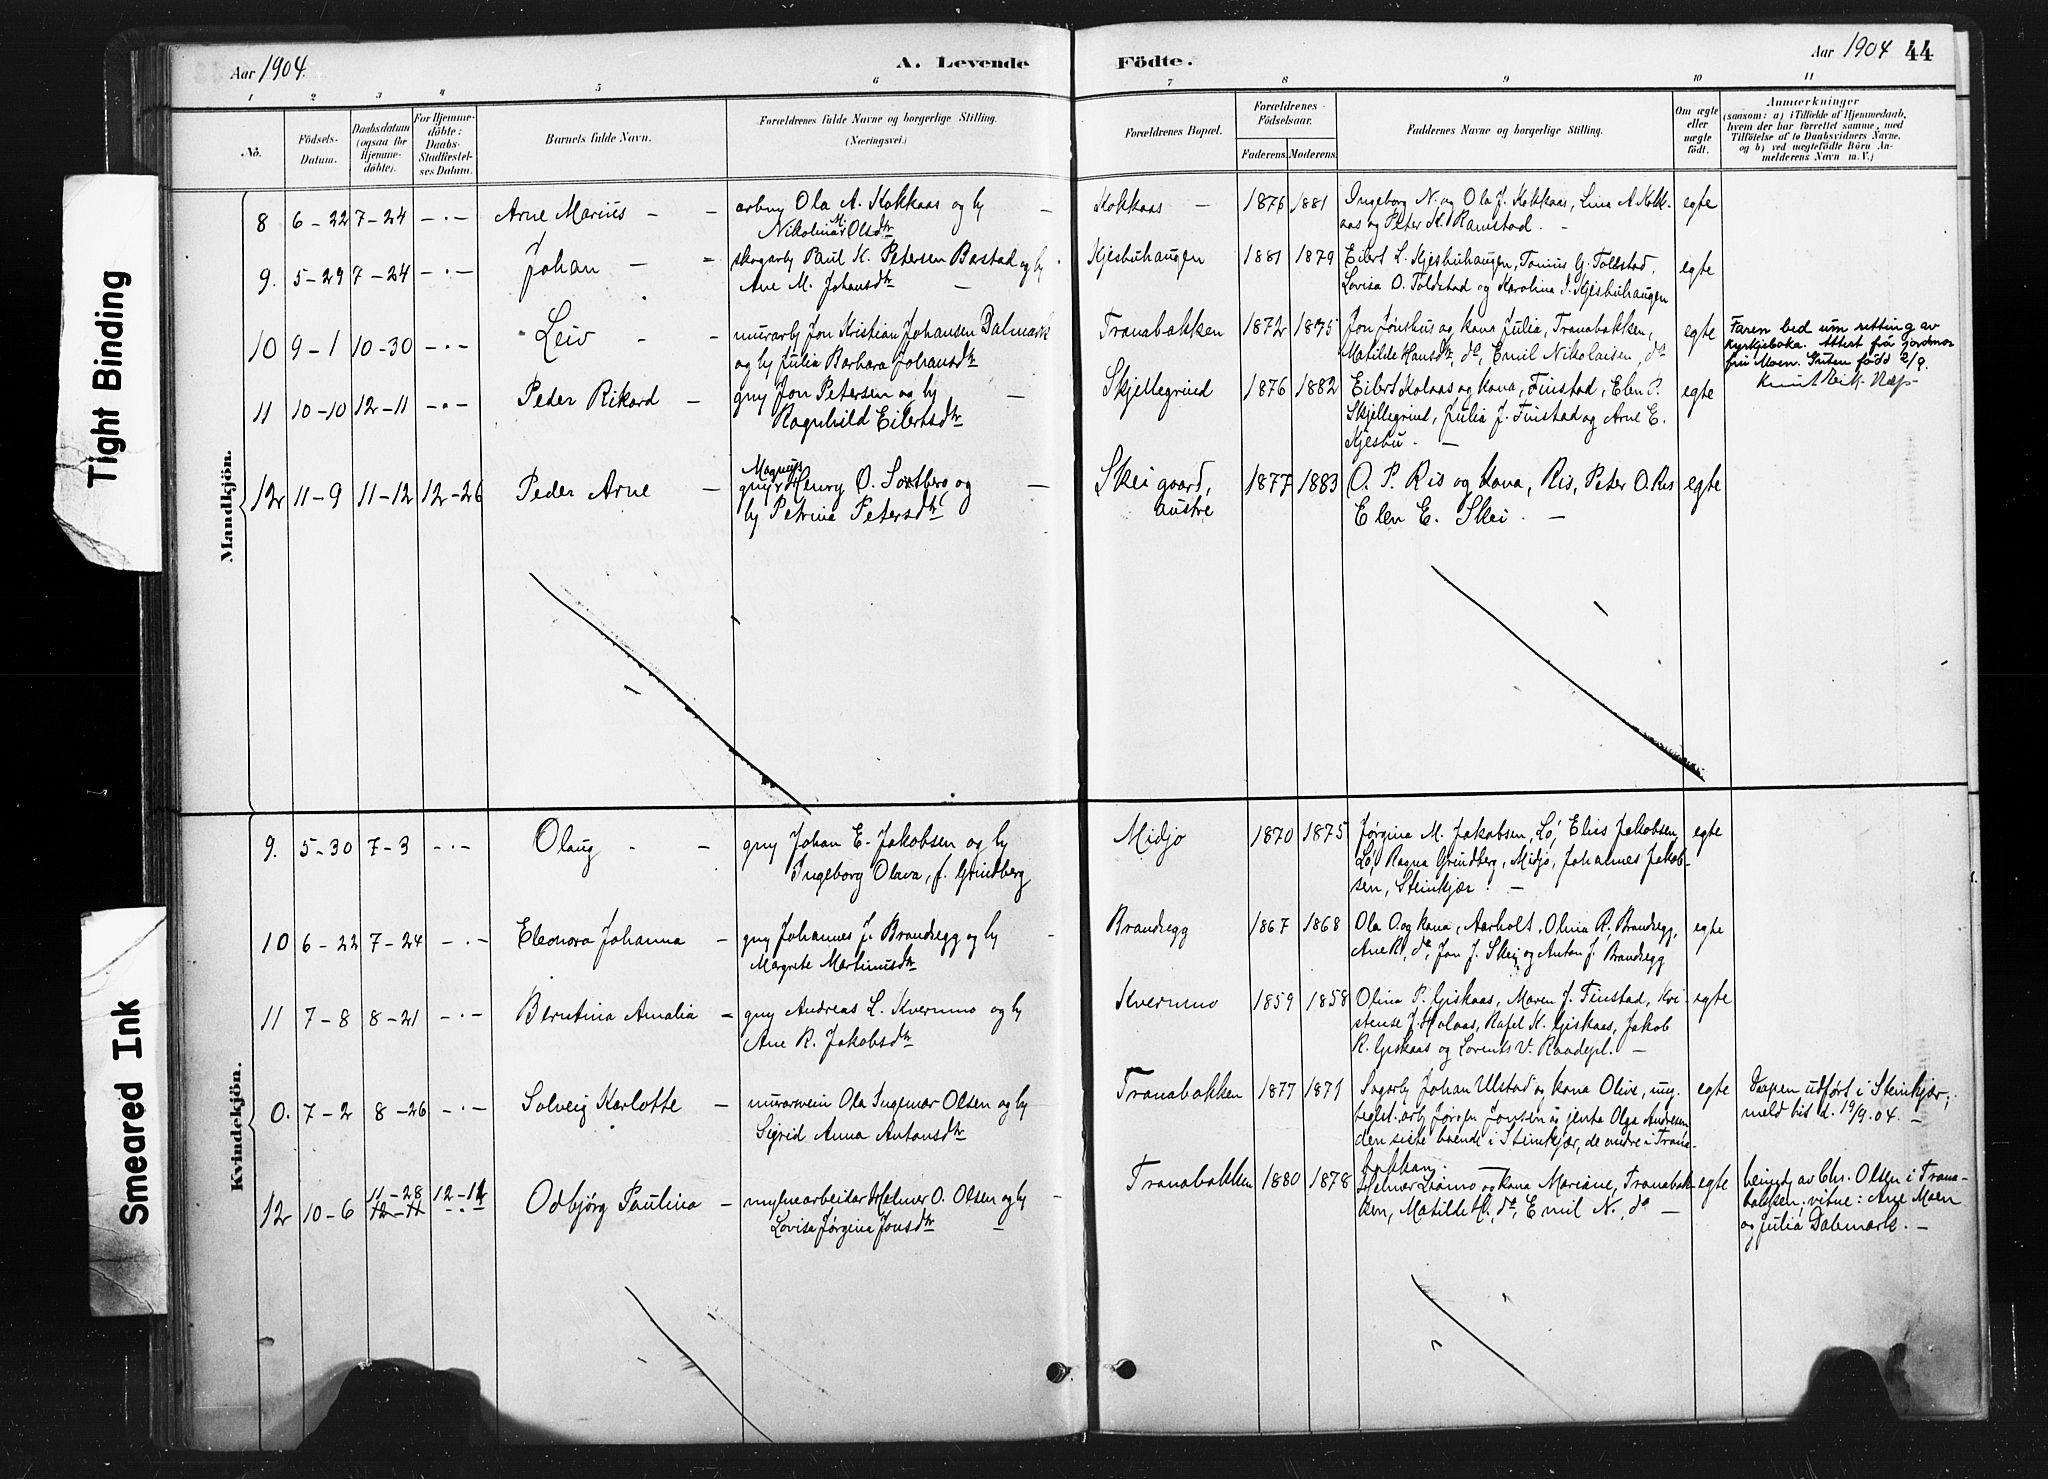 Aar 1904.
A. Levende
Födte.
Aar 1904
44
1 2 3 4 5 6 7 8 9 10 11
No.
Födsels-
Datum.
Daabsdatum
(ogsaa för
Hjemme-
döbte).
For Hjemme-
döbte:
Daabs-
Stadfæstel-
ses Datum.
Barnets fulde Navn.
Forældrenes fulde Navne og borgerlige Stilling.
(Næringsvei.)
Forældrenes Bopæl.
Forældrenes
Födselsaar.
Faderens. Moderens.
Faddernes Navne og borgerlige Stilling.
Om ægte
eller
uægte
født.
Anmærkninger
(saasom: a) i Tilfælde af Hjemmedaab,
hvem der har forrettet samme, med
Tilföielse af to Daabsvidners Navne,
og b) ved uægtefödte Börn An-
melderens Navn m. V.)
Tight Binding
Smeared Ink
Mandkjön.
8 6-22 7-24 -·- Arne Marius - - arbmg Ola A. Kokkaas og hy -
Nikolina M. Olsdtr
Kokkaas - 1876 1881 Ingeborg N. og Ola J. Kokkaas, Lina A. Kokk-
aas og Peter K. Ramstad. - egte
9. 5-29 7-24 -·- Johan - - skogarb Paul K. Petersen Bostad og hy
Ane M. Johansdtr -
Kjesbuhaugen 1881 1879 Eilert L. Kjesbuhaugen, Tomius G. Toldstad,
Lovisa O. Toldstad og Karolina J. Kjesbuhaugen egte
10 9-1 10-30 -·- Leiv - - murarb Jon Kristian Johansen Dalmark
og hy Julia Barbara Johansdtr
Tranabakken 1872 1875 Jon Jønshus og kona Julia, Tranabakken,
Matilde Hansdtr, do, Emil Nikolaisen, do egte
Faren bed um retting av
kyrkjeboka. Attest frå jordmor
fru Moen. Guten fødd 2/9.
11 10-10 12-11 -·- Peder Rikard - gmy Jon Petersen og hy -
Ragnhild Eilertsdtr
Skjellegrind 1876 1882 Eilert Holaas og kona, Finstad, Elen P.
Skjellegrind, Julia J. Finstad og Arne E.
Kjesbu. - egte
12 11-9 11-12 12-26 Peder Arne - Magnus
gmy Henry O. Sortberg og -
hy Petrina Petersdtr
Skei gaard,
austre 1877 1883 O. P. Ris og kona, Ris, Peter O. Ris
Elen E. Skei. - egte
Kvindekjön.
9. 5-30 7-3 -·- Olaug - - gmy Johan E. Jakobsen og hy
Ingeborg Olava, f. Grindberg
Midjo 1870 1875 Jørgina M. Jakobsen, Lø, Elis Jakobsen,
Lø, Ragna Grindberg, Midjo, Johannes Jakob-
sen, Steinkjær. - egte
10 6-22 7-24 -·- Eleonora Johanna - gmy Johannes J. Brandsegg og hy -
Margrete Martinusdtr
Brandsegg 1867 1868 Ola O. og kona, Aarholt, Olina R. Brandsegg,
Ane R., do, Jon J. Skei og Anton J. Brandsegg egte
11 7-8 8-21 -·- Berntina Amalia - gmy Andreas L. Kvernmo og hy
Ane R. Jakobsdtr
Kvernmo 1859 1858 Olina P. Giskaas, Maren J. Finstad, Kri-
stense J. Holaas, Rafel K. Giskaas, Jakob
R. Giskaas og Lorents V. - egte
0. 7-2 8-26 -·- Solveig Karlotte - murarsvein Ola Ingemar Olsen og hy
Sigrid Anna Antonsdtr
Tranabakken 1877 1871 Sagarb Johan Ulstad og kona Olive, ung.
arb Jørgen Jonsen og jenta Olga Andresen
den siste boende i Steinkjær, de andre i Trana-
bakken. egte
Daapen udført i Steinkjær,
meld hit d. 19/9 04. -
12 10-6 11-28
12-11 12-11 Odbjørg Paulina - mylnearbeidar Helmer O. Olsen og hy -
Lovisa Jørgina Jonsdtr -
Tranabakken 1880 1878 Helmer og kona Mariane, Tranabak-
ken, Matilde H., do, Emil N., do - egte
heimd. av Chr. Olsen i Trana-
bakken; vitne: Ane Moen
og Julia Dalmark. -